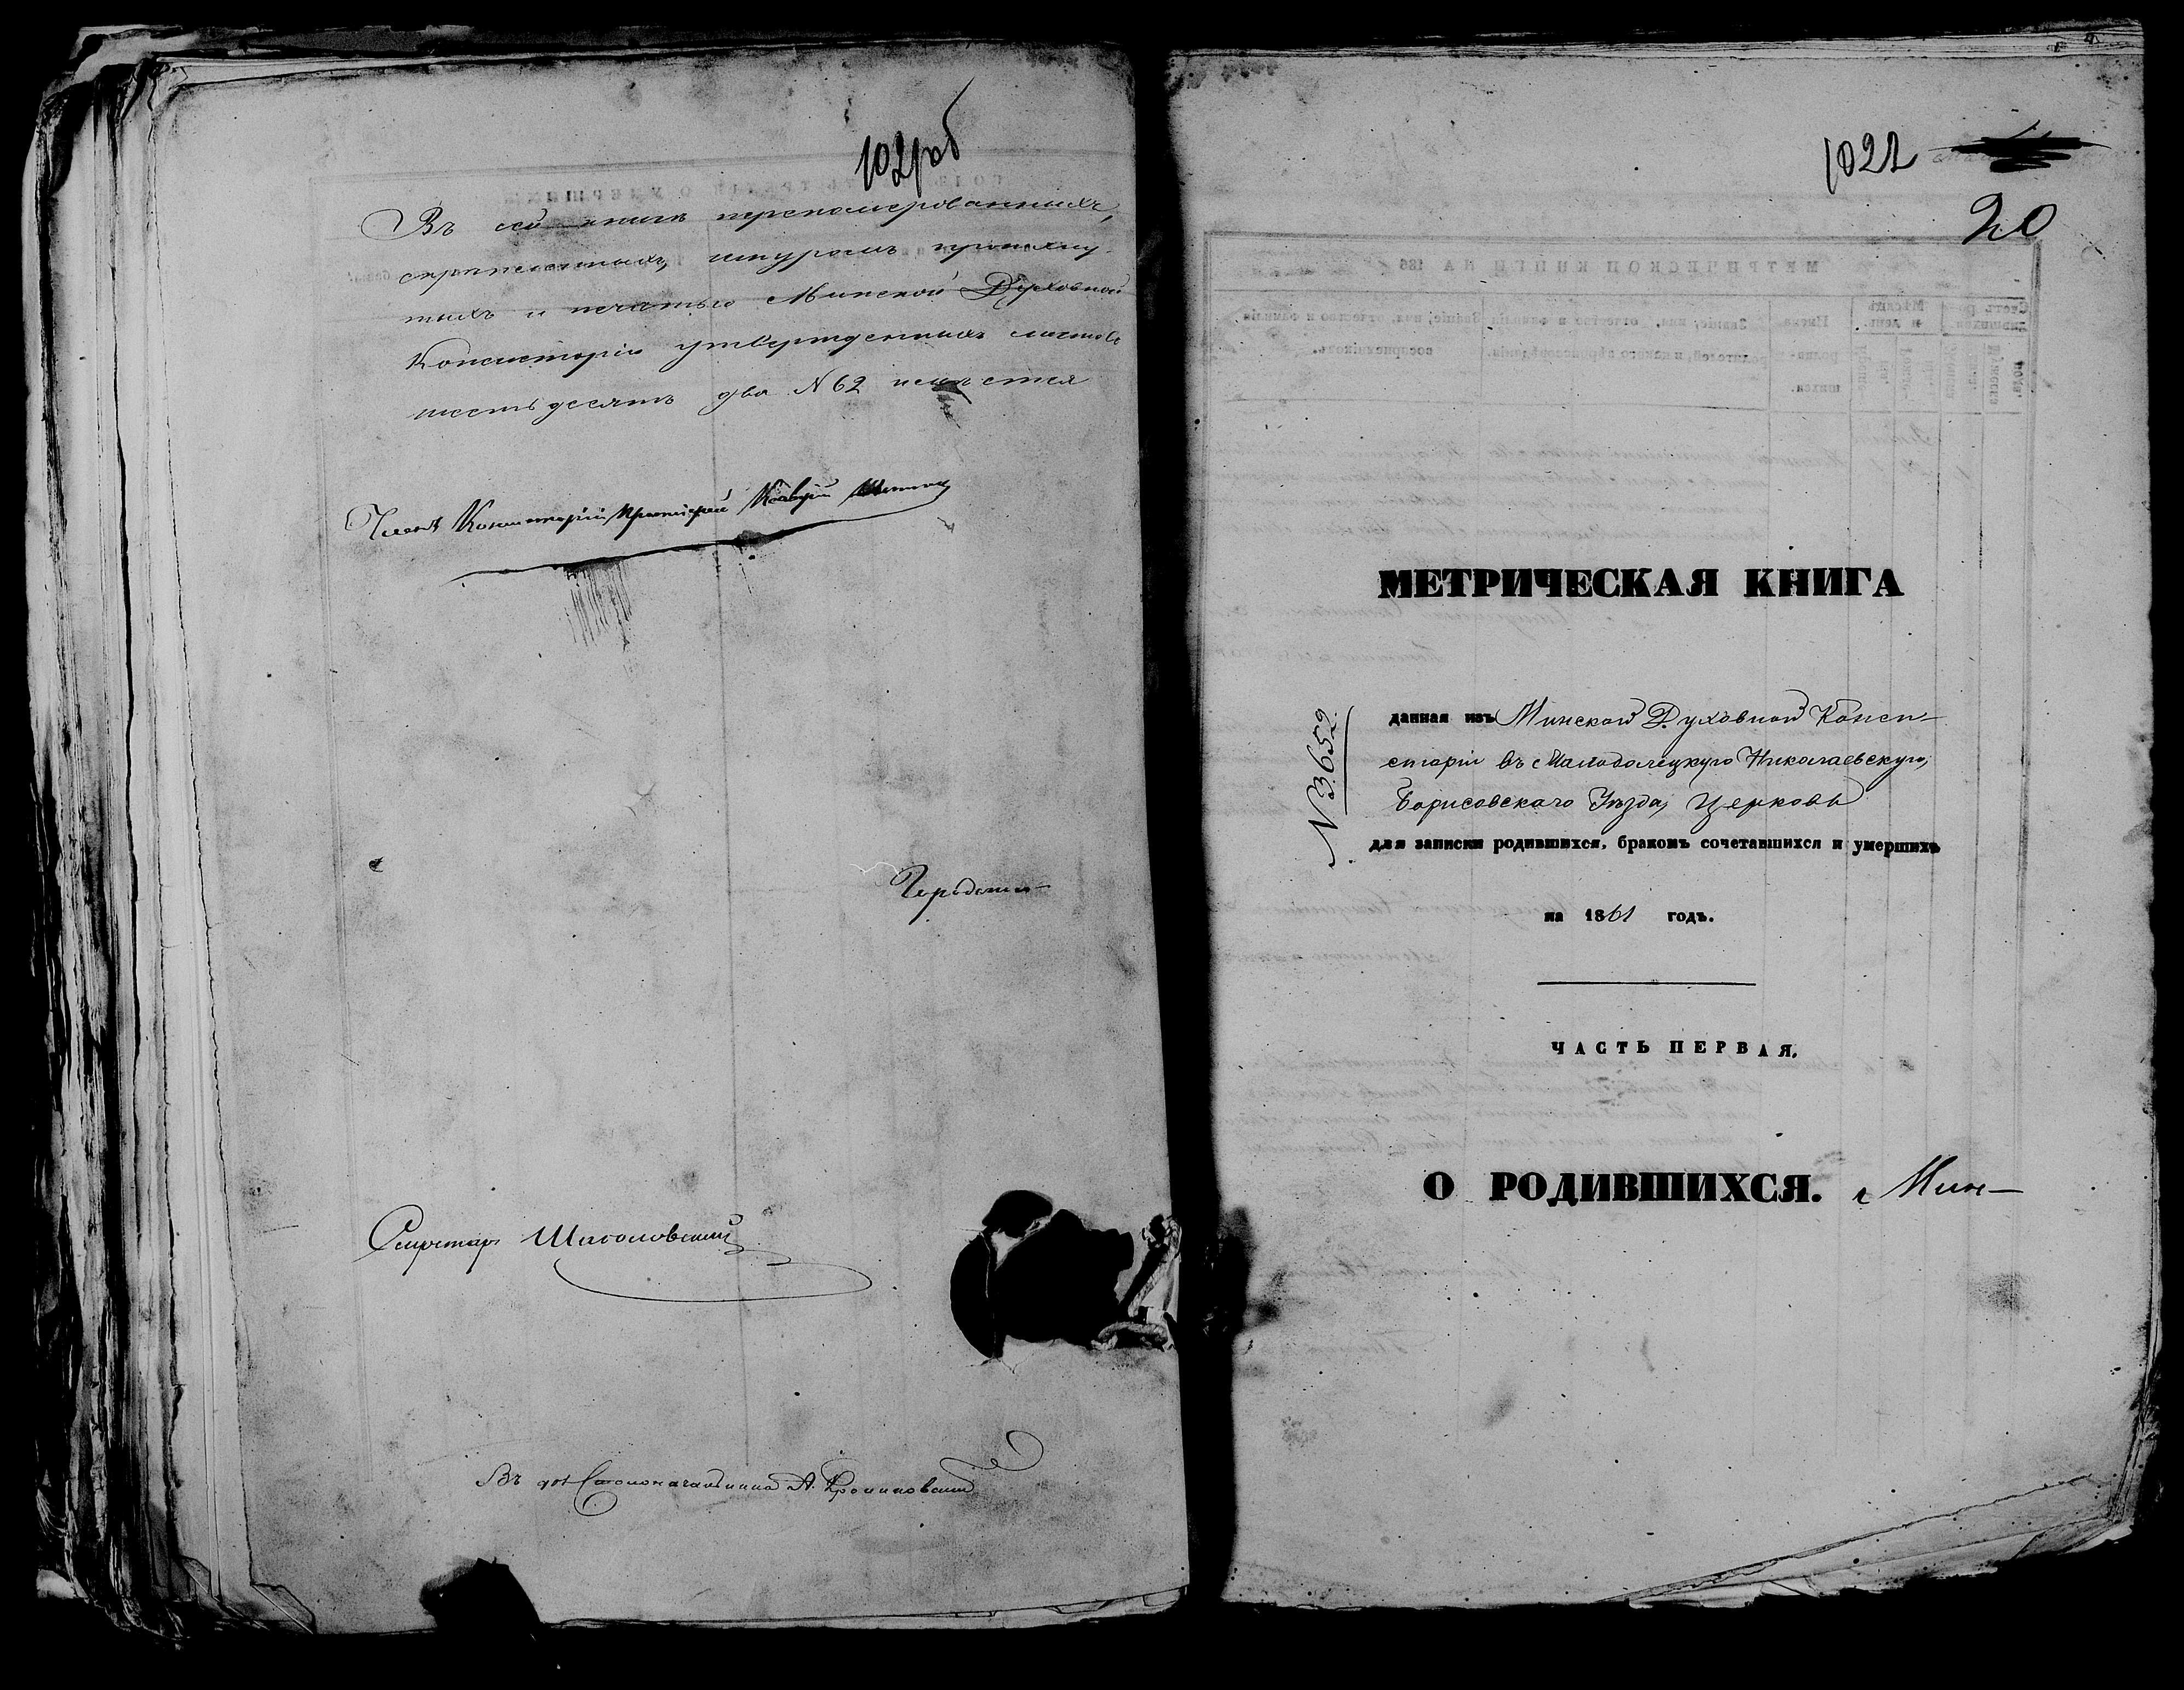 102 об
Въ сей книгѣ переномерованныхъ,
скрѣпленныхъ, шнуромъ прошну-
тыхъ и печатью Минской Духовной
Консисторіи утвержденныхъ листовъ
шестьдесятъ два N 62 имѣется
Членъ Консисторіи Протоіерей
Секретарь
Въ дол Столоначальника А.
1022
20
МЕТРИЧЕСКАЯ КНИГА
N 3652
данная изъ Минской Духовной Конси-
сторіи въ Малодолецкую Николаевскую,
Борисовскаго Уѣзда, Церковь
для записки родившихся, бракомъ сочетавшихся и умершихъ
на 1861 годъ.
ЧАСТЬ ПЕРВАЯ.
О РОДИВШИХСЯ.